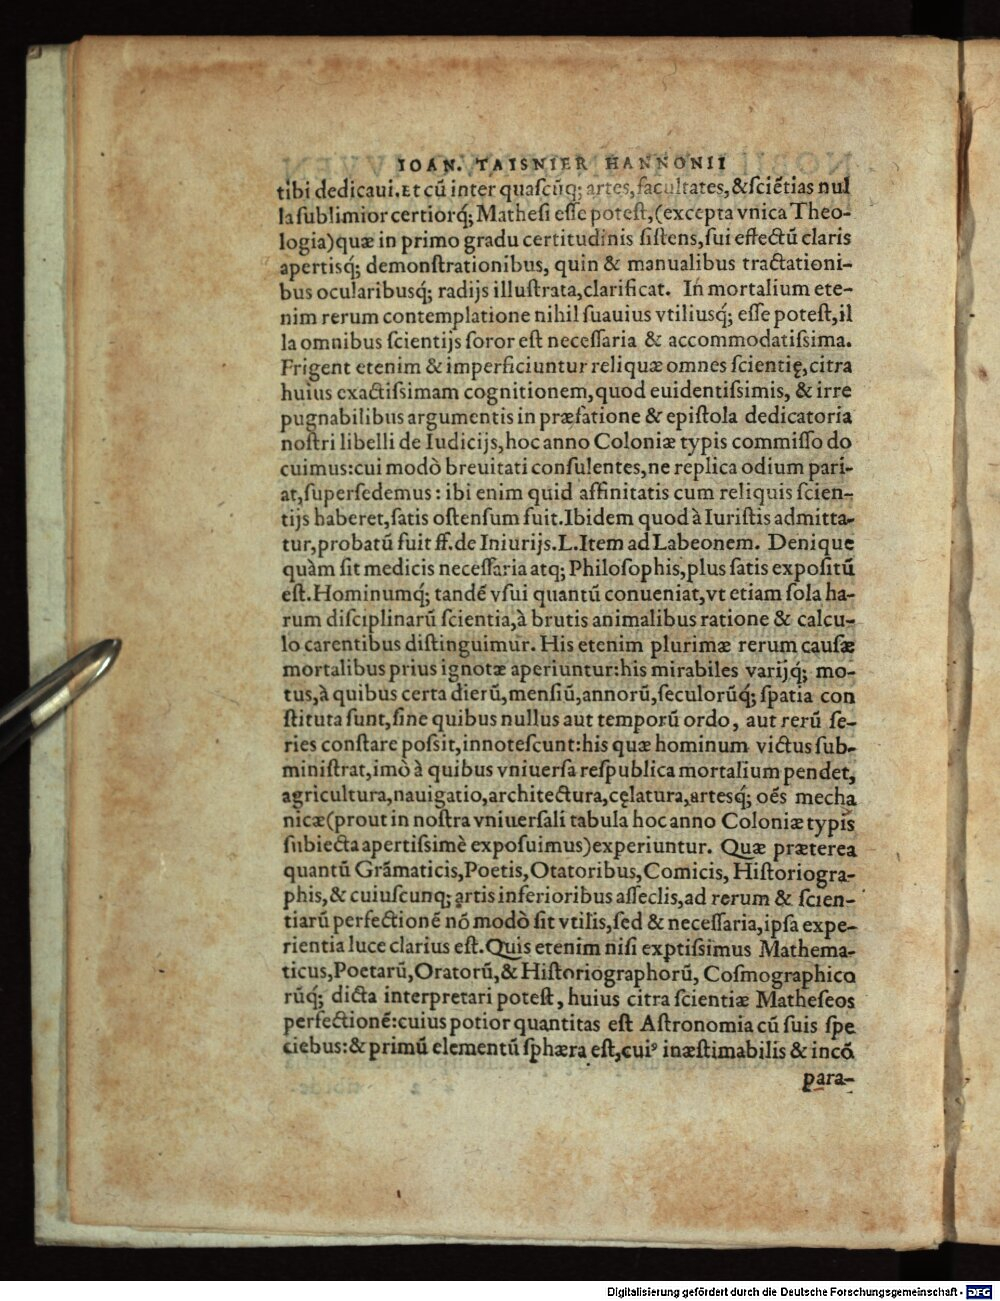 IOAN. TAISNIER HANNONII
tibi dedicaui. Et cũ inter quaſcũq; artes, facultates, & ſciẽtias nul
la ſublimior certiorq́; Matheſi eſſe poteſt, (excepta vnica Theo-
logia) quæ in primo gradu certitudinis ſiſtens, ſui effectũ claris
apertisq́; demonſtrationibus, quin & manualibus tractationi-
bus ocularibusq́; radijs illuſtrata, clarificat. In mortalium ete-
nim rerum contemplatione nihil ſuauius vtiliusq́; eſſe poteſt, il
la omnibus ſcientijs ſoror eſt neceſſaria & accommodatiſsima.
Frigent etenim & imperficiuntur reliquæ omnes ſcientię, citra
huius exactiſsimam cognitionem, quod euidentiſsimis, & irre
pugnabilibus argumentis in præfatione & epiſtola dedicatoria
noſtri libelli de Iudicijs, hoc anno Coloniæ typis commiſſo do
cuimus: cui modò breuitati conſulentes, ne replica odium pari-
at, ſuperſedemus: ibi enim quid affinitatis cum reliquis ſcien-
tijs haberet, ſatis oſtenſum fuit. Ibidem quod à Iuriſtis admitta-
tur, probatũ fuit ff. de Iniurijs. L. Item ad Labeonem. Denique
quàm ſit medicis neceſſaria atq; Philoſophis, plus ſatis expoſitũ
eſt. Hominumq́; tandẽ vſui quantũ conueniat, vt etiam ſola ha-
rum diſciplinarũ ſcientia, à brutis animalibus ratione & calcu-
lo carentibus diſtinguimur. His etenim plurimæ rerum cauſæ
mortalibus prius ignotæ aperiuntur: his mirabiles varijq́; mo-
tus, à quibus certa dierũ, menſiũ, annorũ, ſeculorũq́; ſpatia con
ſtituta ſunt, ſine quibus nullus aut temporũ ordo, aut rerũ ſe-
ries conſtare poſsit, innoteſcunt: his quæ hominum victus ſub-
miniſtrat, imò à quibus vniuerſa reſpublica mortalium pendet,
agricultura, nauigatio, architectura, cęlatura, artesq́; oẽs mecha
nicæ (prout in noſtra vniuerſali tabula hoc anno Coloniæ typis
ſubiecta apertiſsimè expoſuimus) experiuntur. Quæ præterea
quantũ Grãmaticis, Poetis, Otatoribus, Comicis, Hiſtoriogra-
phis, & cuiuſcunq; artis inferioribus aſſeclis, ad rerum & ſcien-
tiarũ perfectionẽ nõ modò ſit vtilis, ſed & neceſſaria, ipſa expe-
rientia luce clarius eſt. Quis etenim niſi exptiſsimus Mathema-
ticus, Poetarũ, Oratorũ, & Hiſtoriographorũ, Coſmographico
rũq́; dicta interpretari poteſt, huius citra ſcientiæ Matheſeos
perfectionẽ: cuius potior quantitas eſt Aſtronomia cũ ſuis ſpe
ciebus: & primũ elementũ ſphæra eſt, cuiꝰ inæſtimabilis & incõ
para-
Digitalisierung gefördert durch die Deutsche Forschungsgemeinschaft - DFG